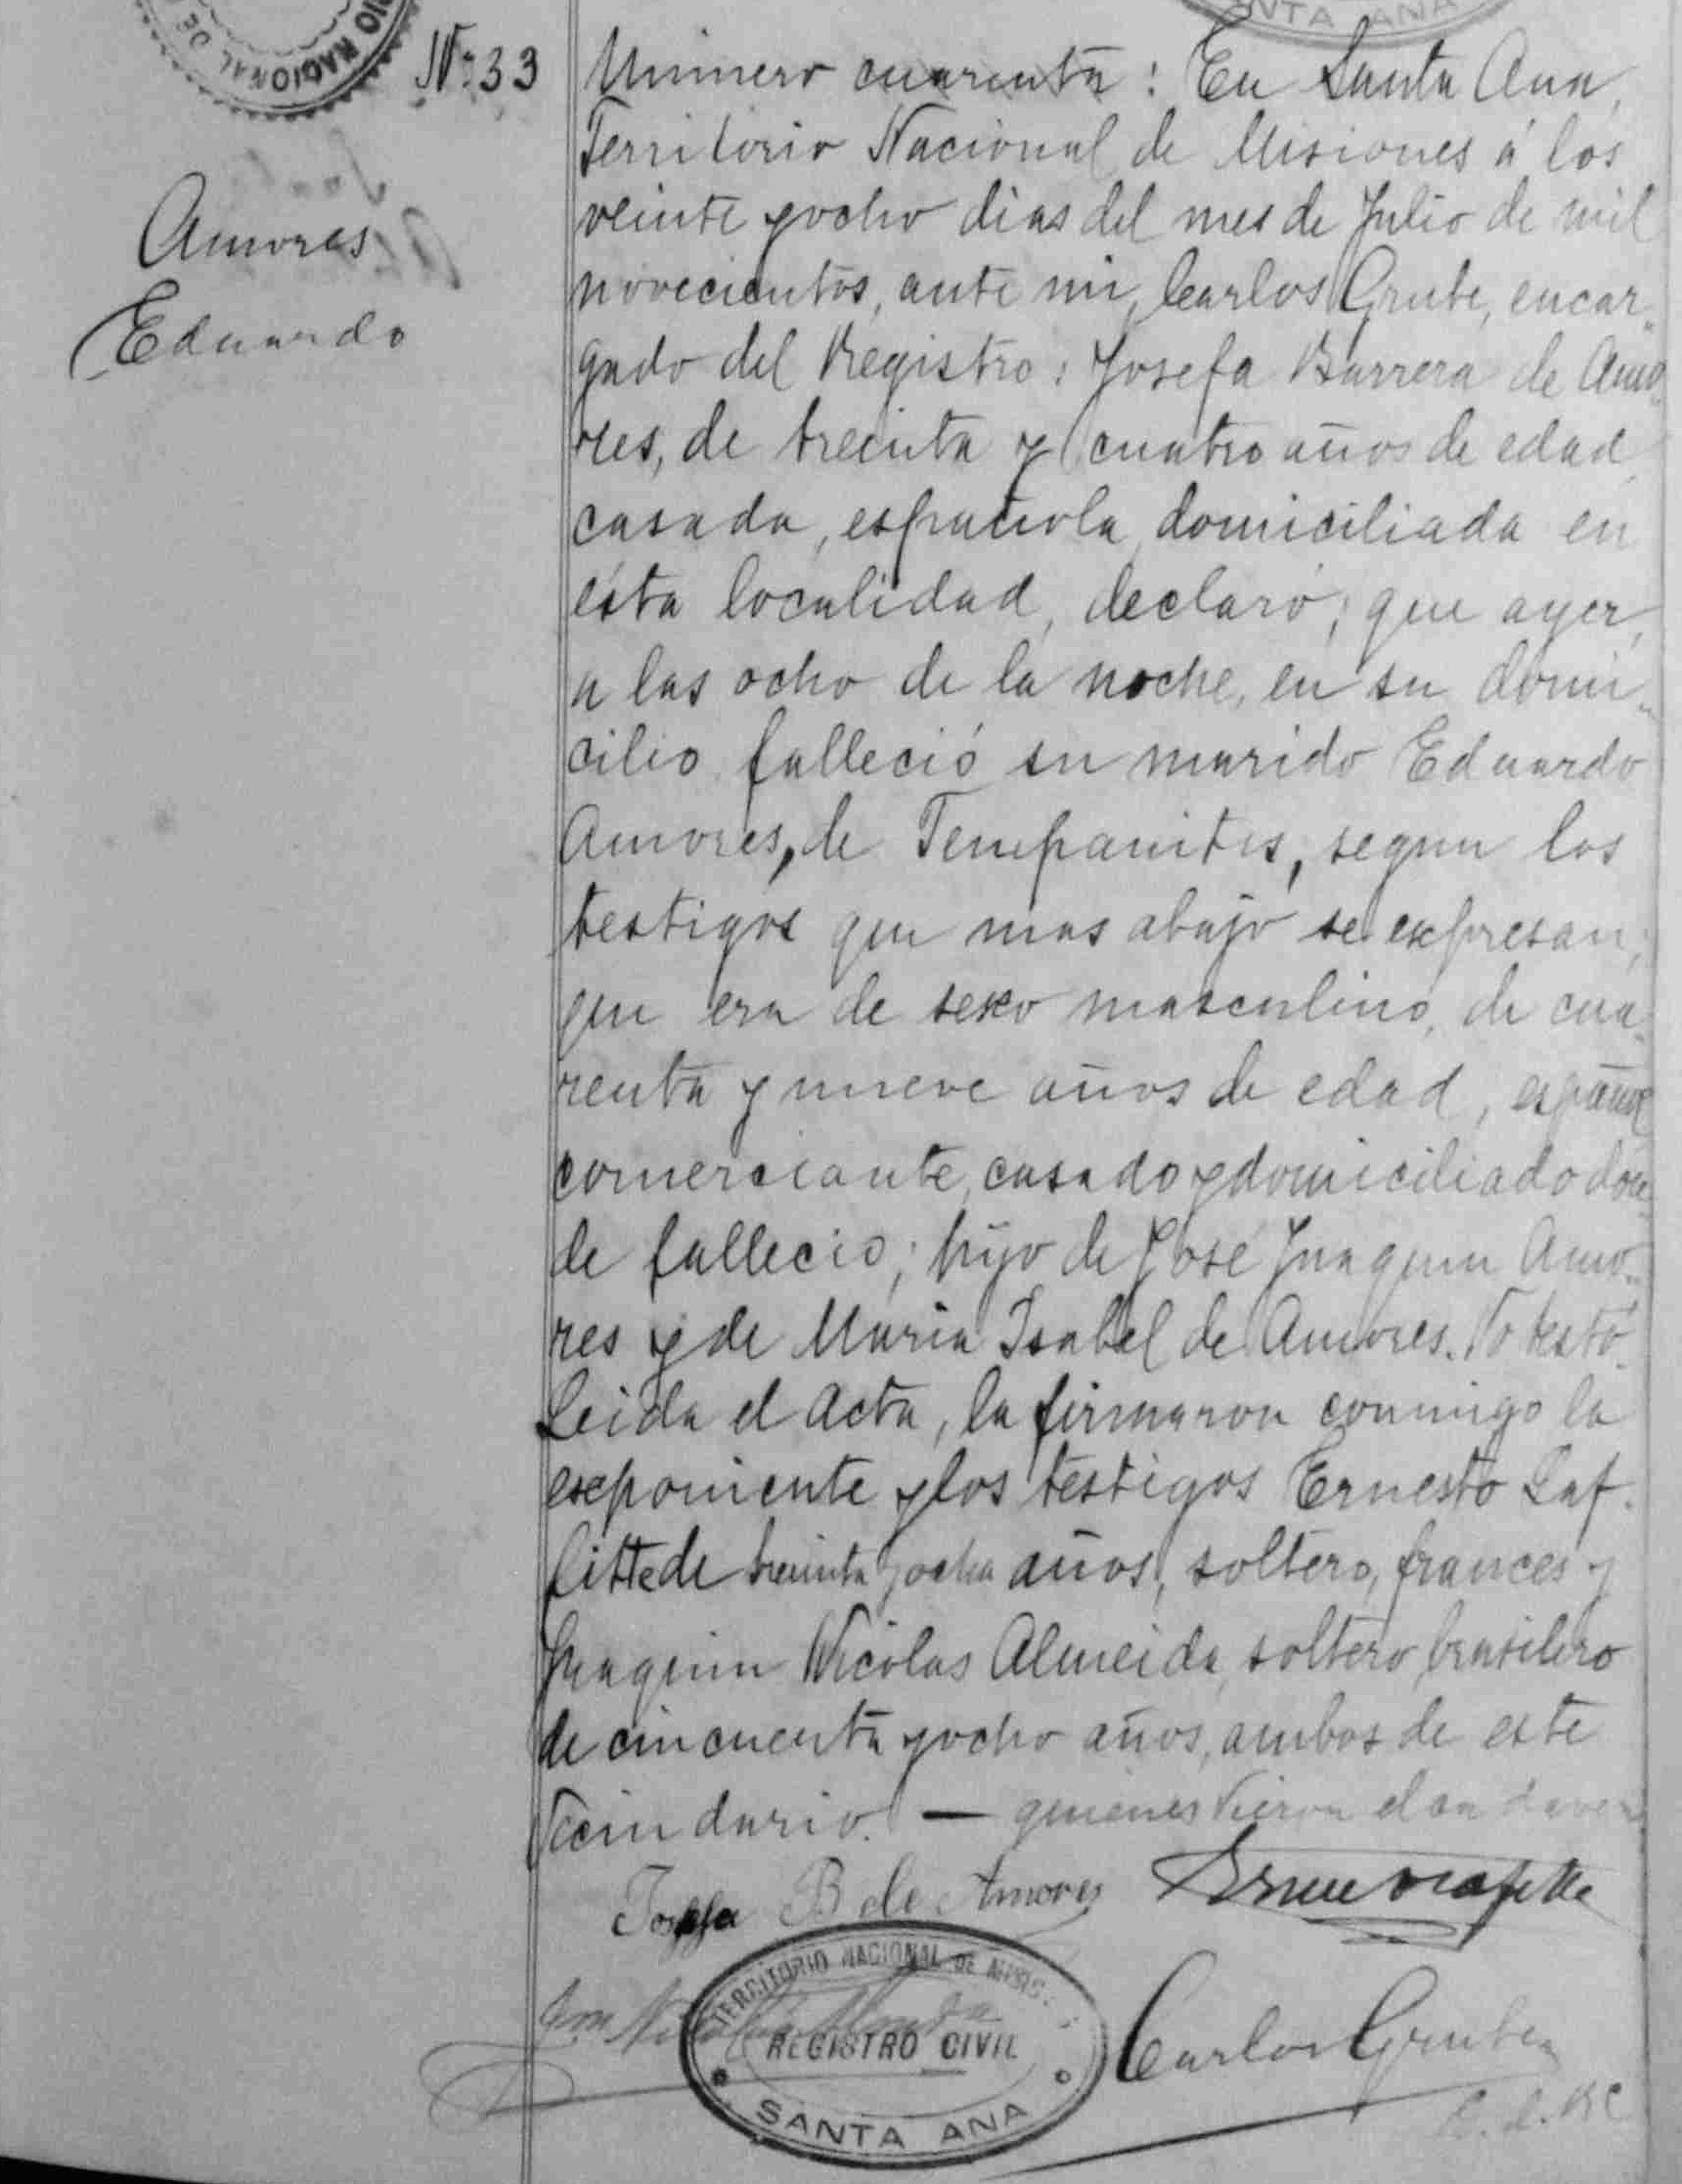 NIO NACIONAL DE
NTA ANA
Nº 33
Amores
Eduardo
Número cuarenta : En Santa Ana,
Territorio Nacional de Misiones á los
veinte y ocho dias del mes de Julio de mil
novecientos, ante mi, Carlos Grute, encar-
gado del Registro : Josefa Barrera de Amo-
res, de treinta y cuatro años de edad,
casada, española, domiciliada en
ésta localidad, declaró; que ayer,
a las ocho de la noche, en su domi-
cilio, falleció su marido Eduardo
Amores, de Tempanitis, segun los
testigos que mas abajo se expresan;
que era de sexo masculino, de cua-
renta y nueve años de edad, español
comerciante, casado y domiciliado don-
de fallecio; hijo de José Juaquin Amo-
res y de Maria Isabel de Amores. No testó.
Leida el Acta, la firmaron conmigo la
exponiente y los testigos Ernesto Laf-
fitte de treinta y ocho años, soltero, frances y
Juaquin Nicolas Almeida, soltero, brasilero
de cincuenta y ocho años, ambos de este
vecindario. — quienes vieron el cadaver
Josefa B de Amores
TERRITORIO NACIONAL DE MISIO
REGISTRO CIVIL
SANTA ANA
Carlos Grute